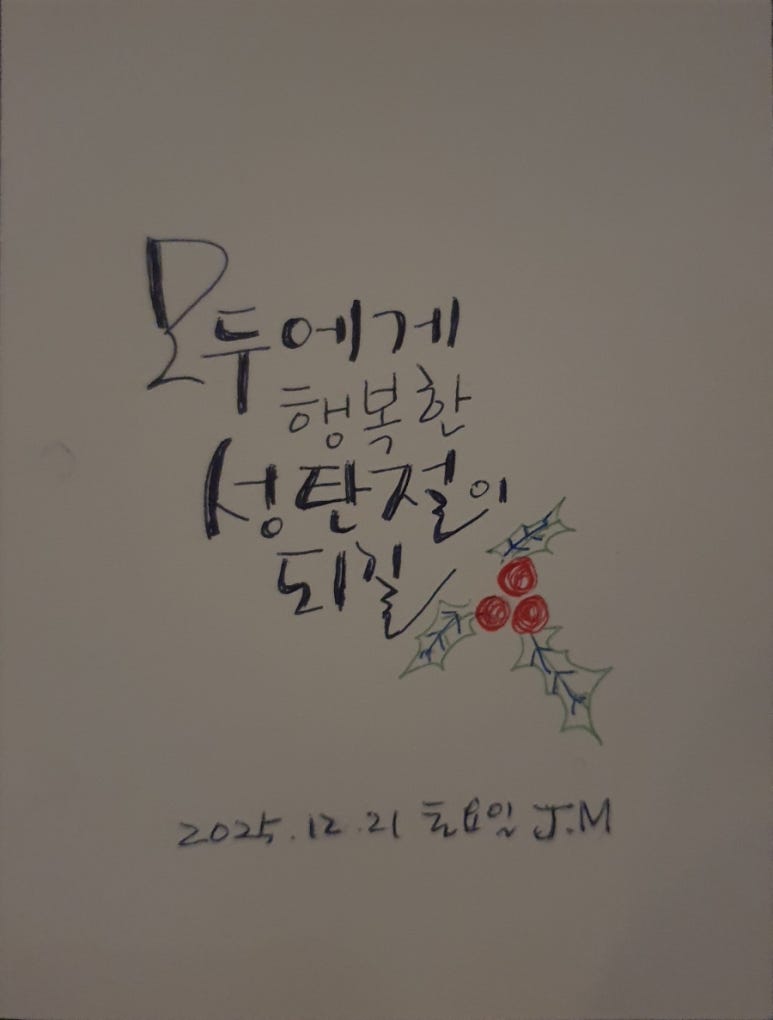 모두에게
행복한
성탄절이
되길
2025.12.21 토요일 J.M